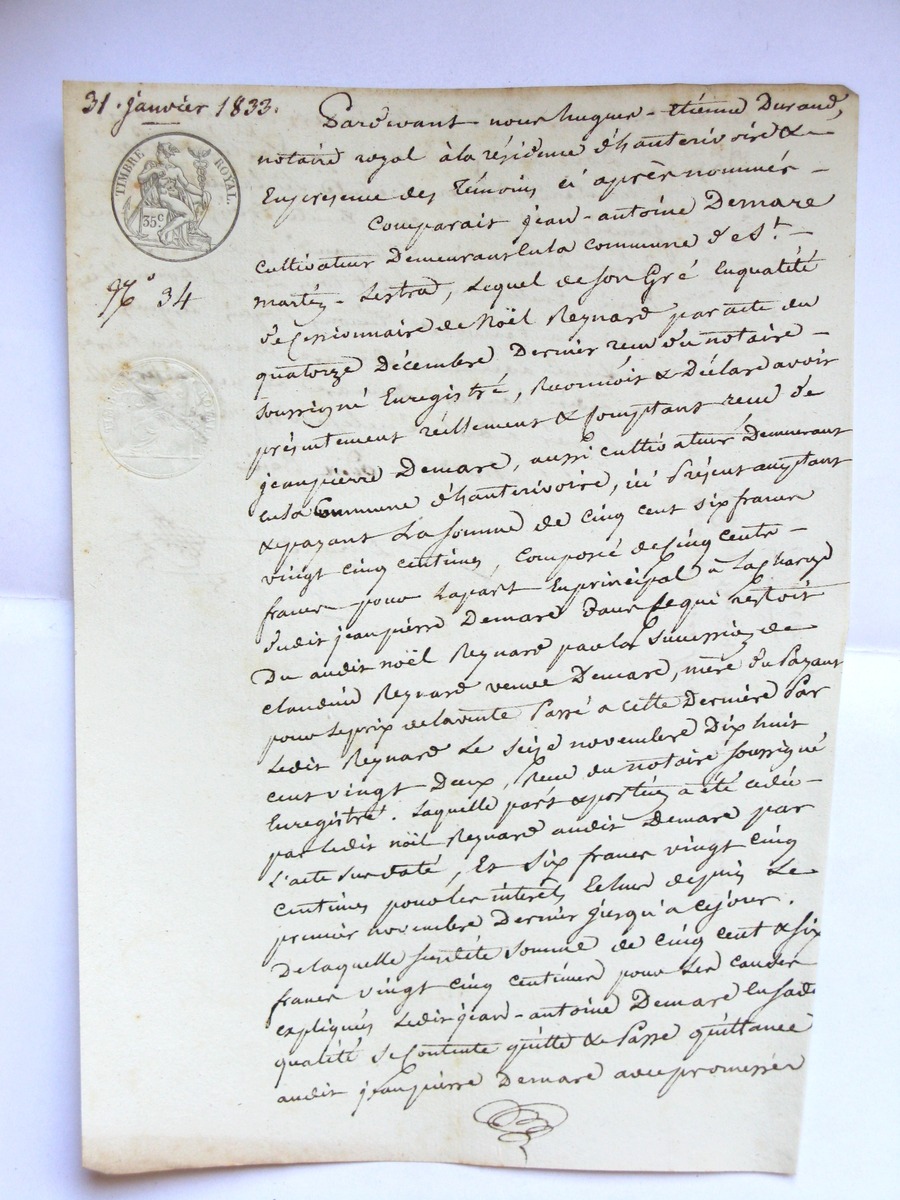 31. janvier 1833.
TIMBRE ROYAL.
35c
N° 34
Pardevant nous hugues-étienne Durand,
notaire royal à la résidence d'hauterivoire &
En présence des Témoins ci après nommés -
Comparait jean-antoine Demare
Cultivateur Demeurant En la commune de St. -
martin-Lestra, Lequel de son Gré En qualité
de Cessionnaire de Noël Reynard par acte du
quatorze Décembre Dernier recu du notaire -
soussigné Enregistré, Reconnoit & Déclare avoir
présentement réellement & comptant recu de
jean pierre Demare, aussi cultivateur Demeurant
En la Commune d'hauterivoire, ici présent acceptant
& payant La somme de cinq cent six francs
vingt cinq centimes, Composée de Cinq cents -
francs pour La part En principal à La charge
dudit jean pierre Demare Dans Ce qui restoit
Du audit noël Reynard par la Succession de
claudine Reynard veuve Demare, mère du Payant
pour Le prix de la vente Passé a cette Dernière Par
Ledit Reynard Le seize novembre Dix huit
cent vingt Deux, Recu du notaire soussigné
Enregistré. Laquelle part & portion a été cédée -
par Ledit noël Reynard audit Demare par
L'acte sus daté, Et six francs vingt cinq
centimes pour les intérêts Echus depuis Le
premier novembre Dernier jusqu'à ce jour.
De laquelle susdite somme de cinq cent & six
francs vingt cinq centimes pour Les causes
expliqués Ledit jean-antoine Demare En sade
qualité Se Contente quitte & Passe quittance
audit jean pierre Demare avec promesses